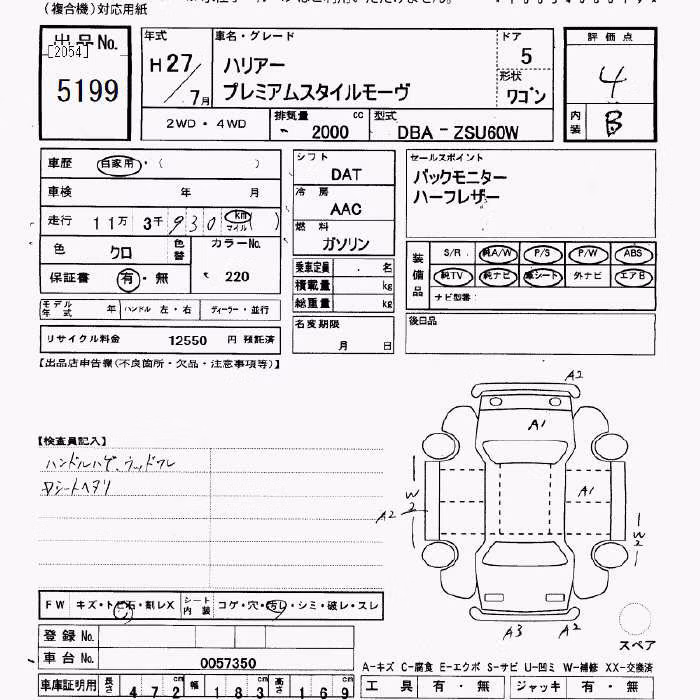 (複合機)対応用紙
出品No.
[2054]
5199
年式
H27/7月
車名・グレード
ハリアー
プレミアムスタイルモーヴ
ドア
5
形状
ワゴン
評価点
4
内装
B
2WD・4WD
排気量
2000
cc
型式
DBA-ZSU60W
車歴 自家用・( )
車検 年 月
走行 11万 3千 930 km マイル ( )
色 クロ
色替
カラーNo.
220
保証書 有・無
モデル年式 年
ハンドル 左・右
ディーラー・並行
リサイクル料金 12550 円 預託済
シフト
DAT
冷房
AAC
燃料
ガソリン
乗車定員 名
積載量 kg
総重量 kg
名変期限
月 日
セールスポイント
バックモニター
ハーフレザー
装備品
S/R 純A/W P/S P/W ABS
純TV 純ナビ 革シート 外ナビ エアB
ナビ型番:
後日品
【出品店申告欄(不良箇所・欠品・注意事項等)】
【検査員記入】
ハンドルハゲ、ウッドワレ
Dシートヘタリ
A2
A1
A1
W2
A2
W2
A3
A2
スペア
FW キズ・トビ石・割レX
シート内装 コゲ・穴・汚レ・シミ・破レ・スレ
登録No.
車台No. 0057350
車庫証明用 長さ 472cm 幅 183cm 高さ 169cm
A-キズ C-腐食 E-エクボ S-サビ U-凹ミ W-補修 XX-交換済
工具 有・無 ジャッキ 有・無